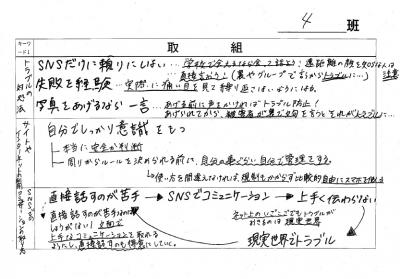 4 班
キーワード1
取組
トラブルの対処法
SNSだけに頼りにしない…学校で会えるなら会って話そう! 遠距離の顔を知らない人は注意
直接言おう!(裏やグループで言うからトラブルに…)
失敗を経験…実際に痛い目を見て繰り返さないようにする。
写真をあげるなら一言…あげる前に声をかければトラブル防止!
あげられてから、被害者が裏で文句を言うとそれがトラブルに…
自分でしっかり意識をもつ
本当に安全か判断
周りからルールを決められる前に、自分の事ぐらい自分で管理する。
→使い方を間違えなければ、規制もかからず比較的自由にスマホを使える
直接話すのが苦手→SNSでコミュニケーション→上手く伝わらない
直接話すのが苦手なのは
しょうがない!
上手なコミュニケーションを取れる
ようにし、直接話すのも得意にしていく。
ネット上のいざこざでもトラブルが
おきるのは現実世界
現実世界でトラブル